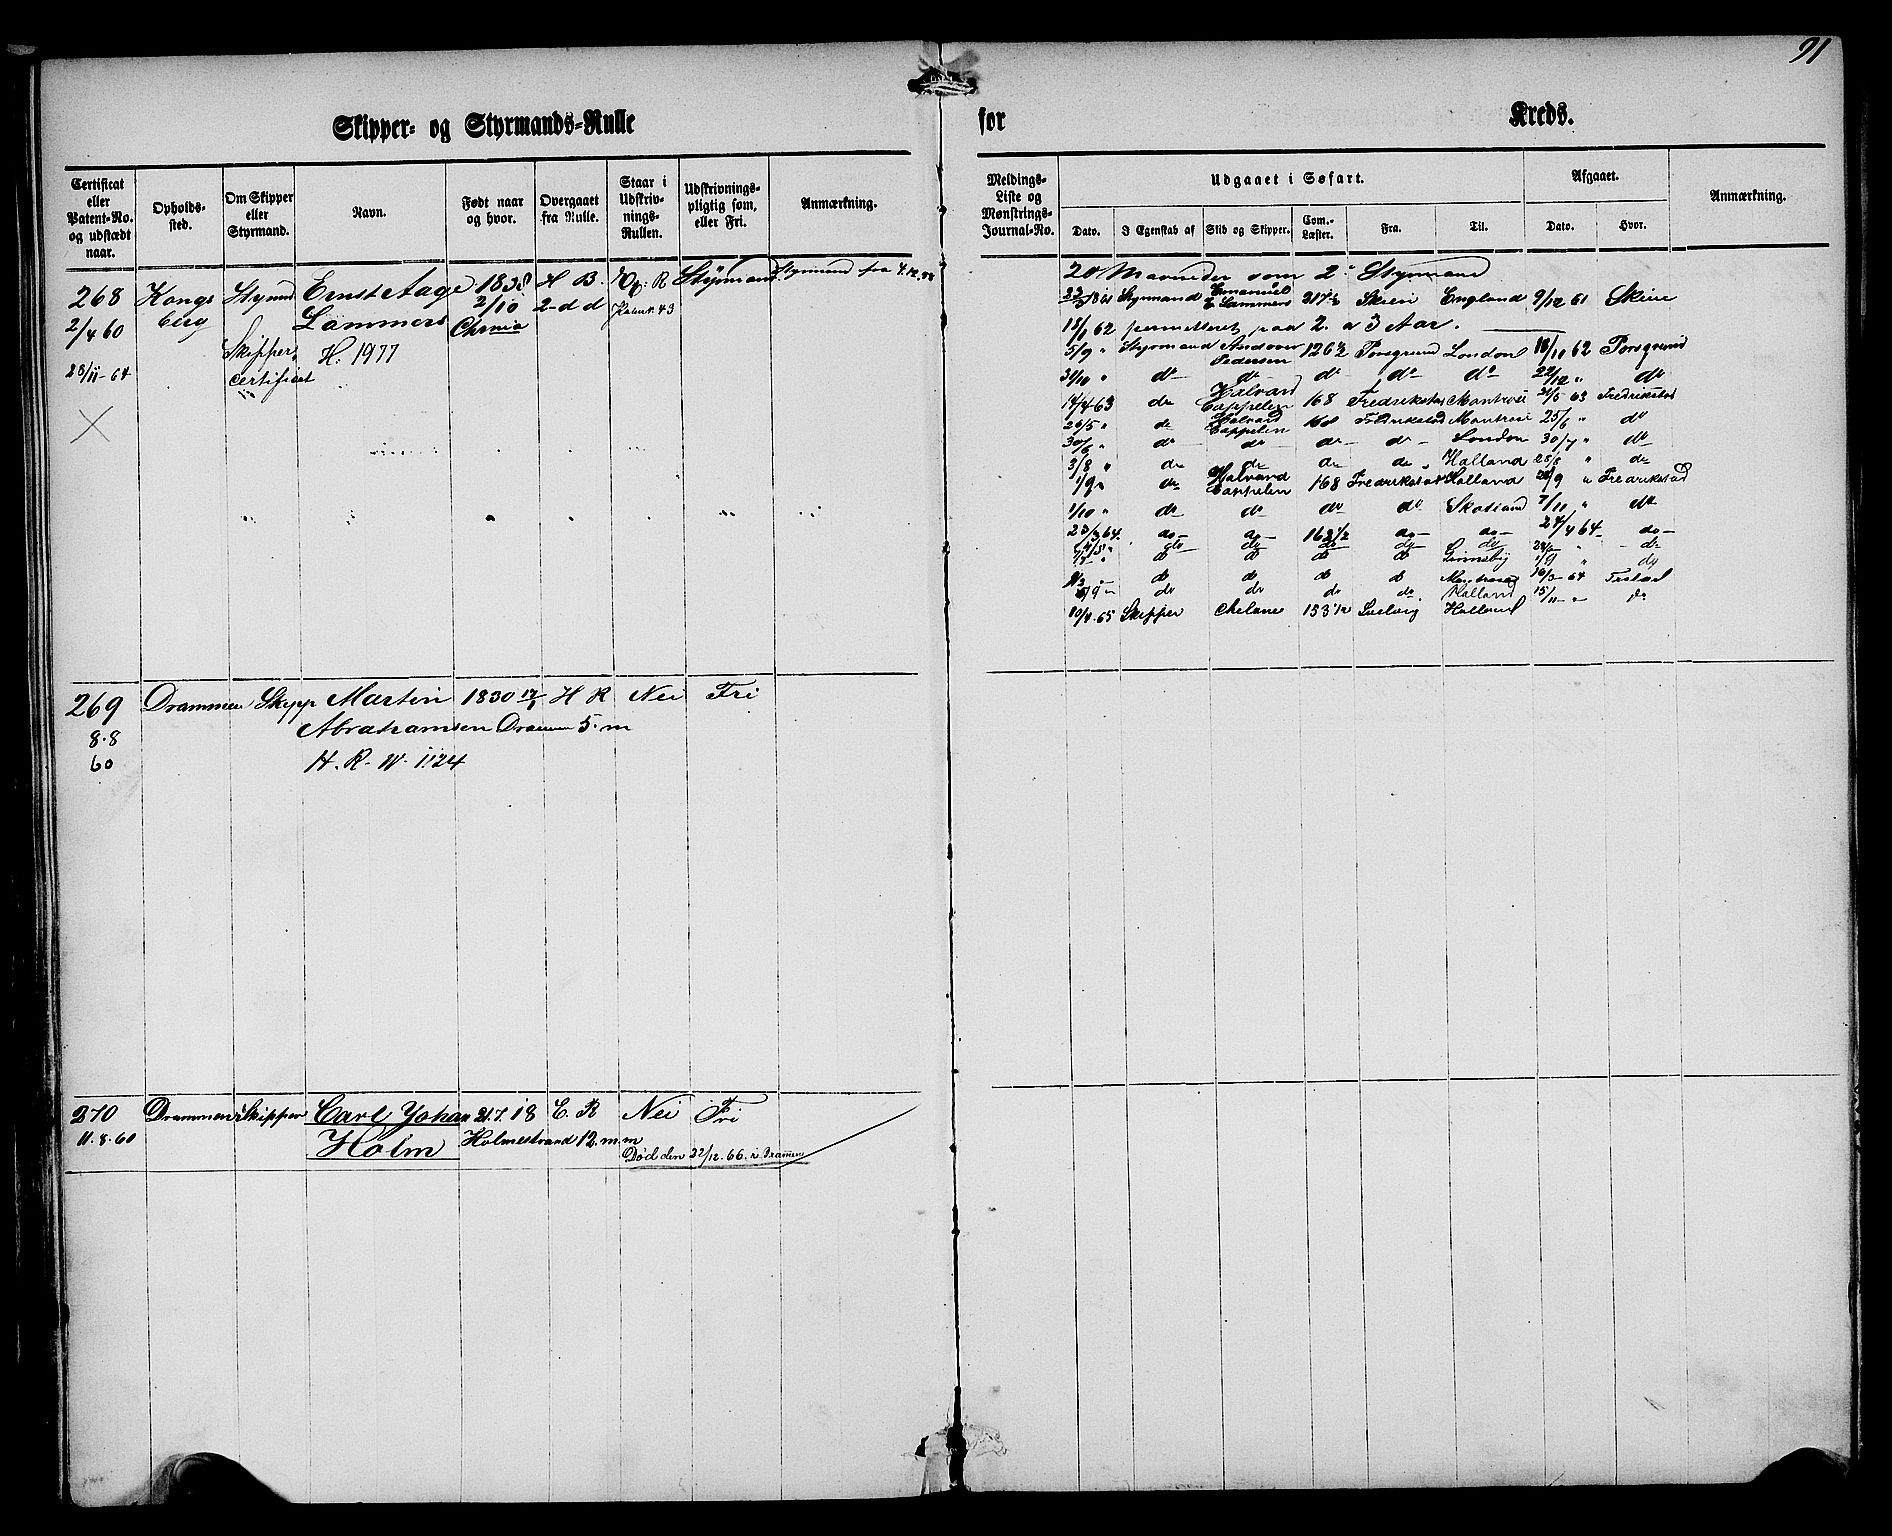 91
Skipper- og Styrmands-Rulle for Kreds.
Certificat eller Patent-No. og udstædt naar.
Opholds-sted.
Om Skipper eller Styrmand.
Navn.
Født naar og hvor.
Overgaaet fra Rulle.
Staar i Udskriv-nings-Rullen.
Udskrivnings-pligtig som, eller Fri.
Anmærkning.
Meldings-Liste og Mønstrings-Journal-No.
Udgaaet i Søfart.
Dato. I Egenskab af Skib og Skipper. Com.-Læster. Fra. Til.
Afgaaet.
Dato. Hvor.
Anmærkning.
268 Kongs Styrmd Ernst Aage 1838 H B. R Styrmand Styrmand fra
2/4 60 berg Lammers 2/10 2-d d
Chrnia
Skipper H: 1977
25/11-64 certificat
20 Maaneder som 2. Styrmand
61 Styrmand Emanuel E Lammers 217 1/2 Skien England 9/12 61 Skien
18/1 62 permitteret paa 2 a 3 Aar.
5/9 " Styrmand Andover Pedersen 126 1/2 Porsgrund London 18/10 62 Porsgrund
31/10 " do do do do do 22/12 " do
14/4 63 do Halvard Cappelen 168 Fredrikstad Montrose 63 Fredrikstad
26/5 " do Halvard Cappelen 168 Fredrikstad Montrose 25/6 " do
30/6 " do do do do London 30/7 " do
3/8 " do do do do Holland 28/8 " do
1/9 " do Halvard Cappelen 168 Fredrikstad Holland 26/9 " Fredrikstad
1/10 " do do do do Skotland 7/11 " do
23/3 64 do do 162 1/2 do do 24/4 64 do
do do do do do " do
do do do do Grimsby 1/9 " do
do do do do 64
9 do do do do Holland 15/11 do
10/4 65 Skipper 153 1/2 Svelvig Holland
269 Drammen Skipp Martin 1830 H R Nei Fri
8.8 Abrahamsen Drammen 5. m
60 H. R. N. 1124
270 Drammen Skipper Carl Johan 21.7.18 E. R Nei Fri
11.8.60 Holm Holmestrand 12. m. m
Død den 22/12.66. i Drammen